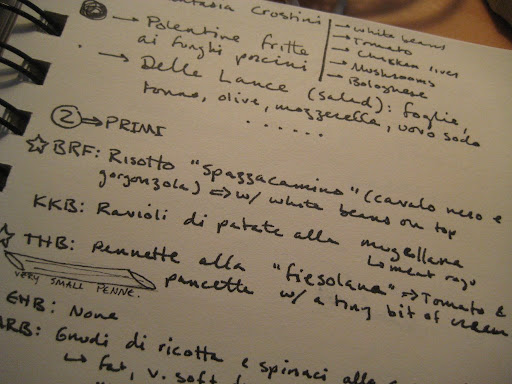 Crostini → white beans
→ Tomato
→ Polentine fritte → Chicken liver
ai funghi porcini → Mushrooms
→ Bolognese
→ Delle Lance (salad): foglie,
tonno, olive, mozzerella, uovo sodo
......
② → PRIMI
☆ BRF: Risotto "Spazzacamino" (cavalo nero e
gorgonzola) ⇒ w/ white beans on top
KKB: Ravioli di patate alla mugellana
☆ THB: pennette alla "fiesolana" ⇒ Tomato &
VERY SMALL PENNE. pancetta w/ a tiny bit of cream
EHB: None
RB: Gnudi di ricotta e spinaci alla
↳ fat, v. soft